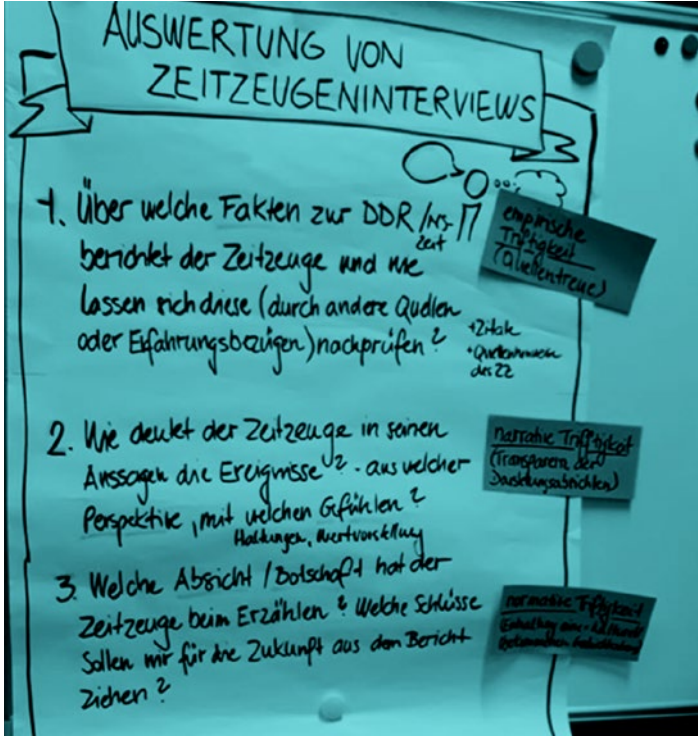 AUSWERTUNG VON
ZEITZEUGENINTERVIEWS
1. Über welche Fakten zur DDR/NS-
Zeit
berichtet der Zeitzeuge und wie
lassen sich diese (durch andere Quellen
oder Erfahrungsbezügen) nachprüfen?
+Zitate
+Quellenhinweise
des ZZ
empirische
Triftigkeit
(Quellentreue)
2. Wie deutet der Zeitzeuge in seinen
Aussagen die Ereignisse? - aus welcher
Perspektive, mit welchen Gefühlen?
Haltungen, Wertvorstellung
narrative Triftigkeit
(Transparenz der
3. Welche Absicht/Botschaft hat der
Zeitzeuge beim Erzählen? Welche Schlüsse
Sollen wir für die Zukunft aus dem Bericht
Ziehen?
normative Triftigkeit